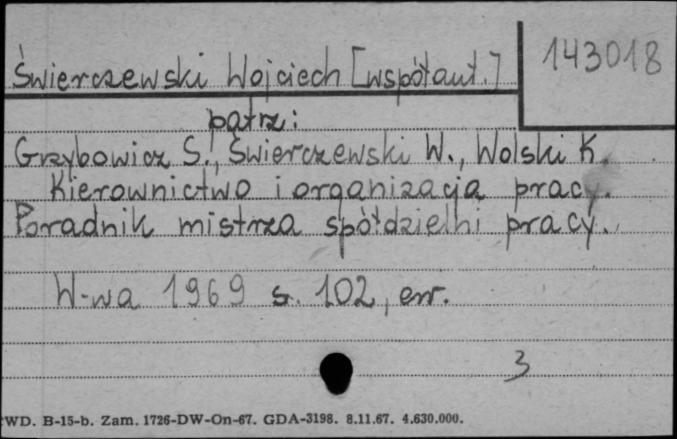 143018
Świerczewski Wojciech [współaut.]
patrz:
Grzybowicz S., Świerczewski W., Wolski K.
Kierownictwo i organizacja pracy.
Poradnik mistrza spółdzielni pracy.
W-wa 1969 s. 102, err.
3
WD. B-15-b. Zam. 1726-DW-On-67. GDA-3198. 8.11.67. 4.630.000.